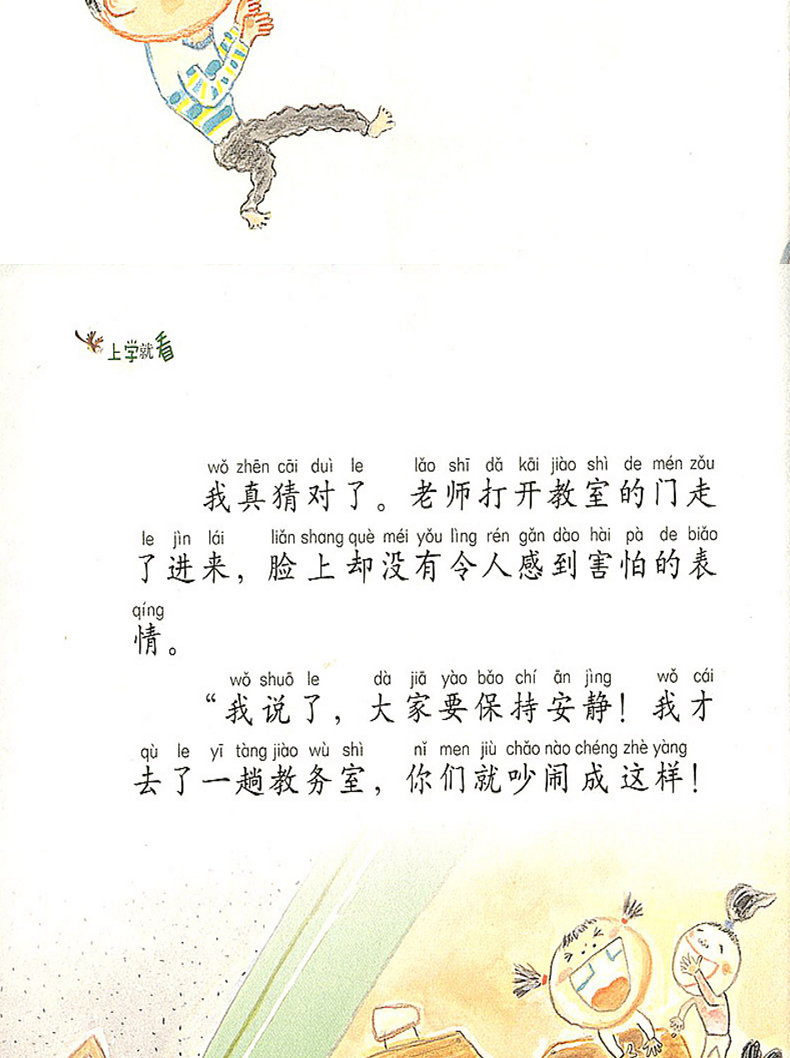 上学就看
wǒ zhēn cāi duì le lǎo shī dǎ kāi jiào shì de mén zǒu
我真猜对了。老师打开教室的门走
le jìn lái liǎn shang què méi yǒu lìng rén gǎn dào hài pà de biǎo
了进来，脸上却没有令人感到害怕的表
qíng
情。
wǒ shuō le dà jiā yào bǎo chí ān jìng wǒ cái
“我说了，大家要保持安静！我才
qù le yī tàng jiào wù shì nǐ men jiù chǎo nào chéng zhè yàng
去了一趟教务室，你们就吵闹成这样！